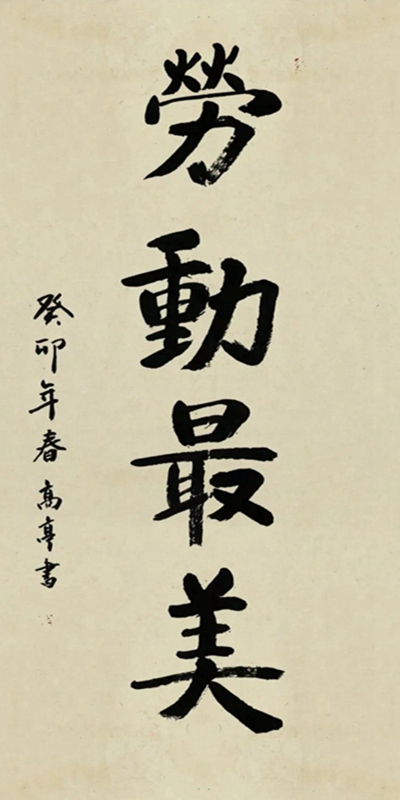 勞動最美
癸卯年春高亭書